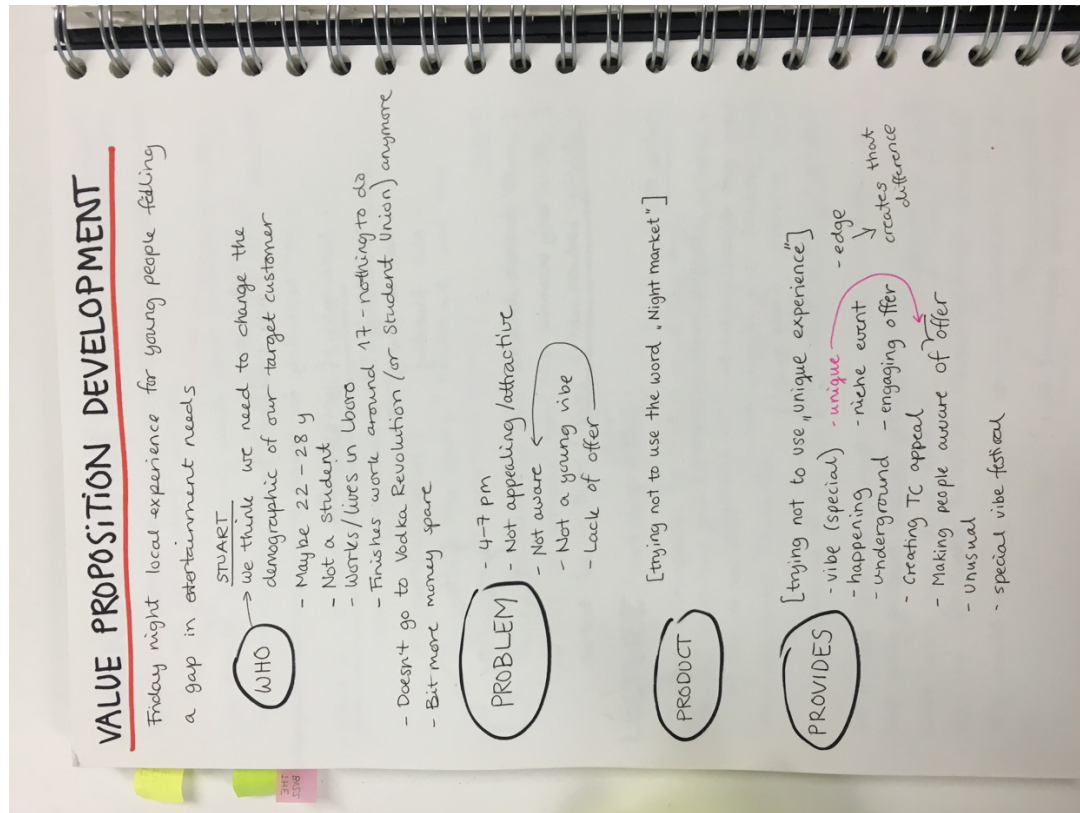 VALUE PROPOSITION DEVELOPMENT
Friday night local experience for young people filling
a gap in entertainment needs
STUART
WHO
we think we need to change the
demographic of our target customer
- Maybe 22-28 y
- Not a student
- Works/lives in Lboro
- Finishes work around 17 - nothing to do
- Doesn't go to Vodka Revolution (or Student Union) anymore
- Bit more money spare
PROBLEM
- 4-7 pm
- Not appealing/attractive
- Not aware
- Not a young vibe
- Lack of offer
PRODUCT
[trying not to use the word „Night market"]
PROVIDES
[trying not to use „unique experience"]
- vibe (special) - unique - edge
- happening - niche event creates that
- underground - engaging offer difference
- Creating TC appeal
- Making people aware of offer
- Unusual
- special vibe festival